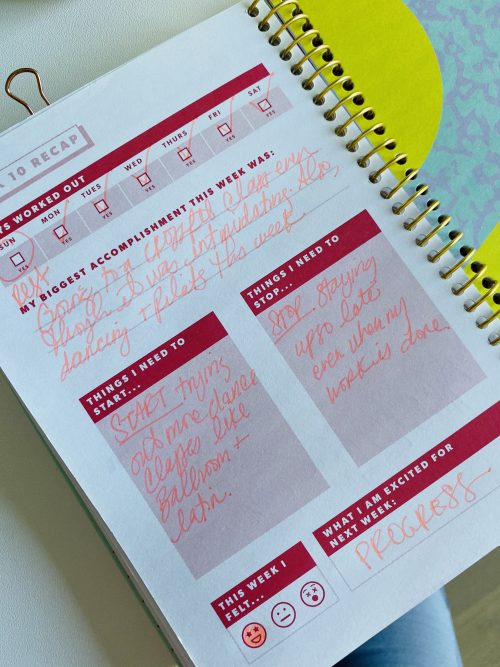 10 RECAP
YS WORKED OUT
SUN MON TUES WED THURS FRI SAT
YES YES YES YES YES YES YES
Rest
MY BIGGEST ACCOMPLISHMENT THIS WEEK WAS:
Going to a crossfit class even
though it was intimidating. Also,
dancing + Pilates this week
THINGS I NEED TO
START...
START trying
out more dance
classes like
Ballroom +
latin.
THINGS I NEED TO
STOP...
STOP staying
up so late
even when my
work is done.
WHAT I AM EXCITED FOR
NEXT WEEK:
PROGRESS
THIS WEEK I
FELT...